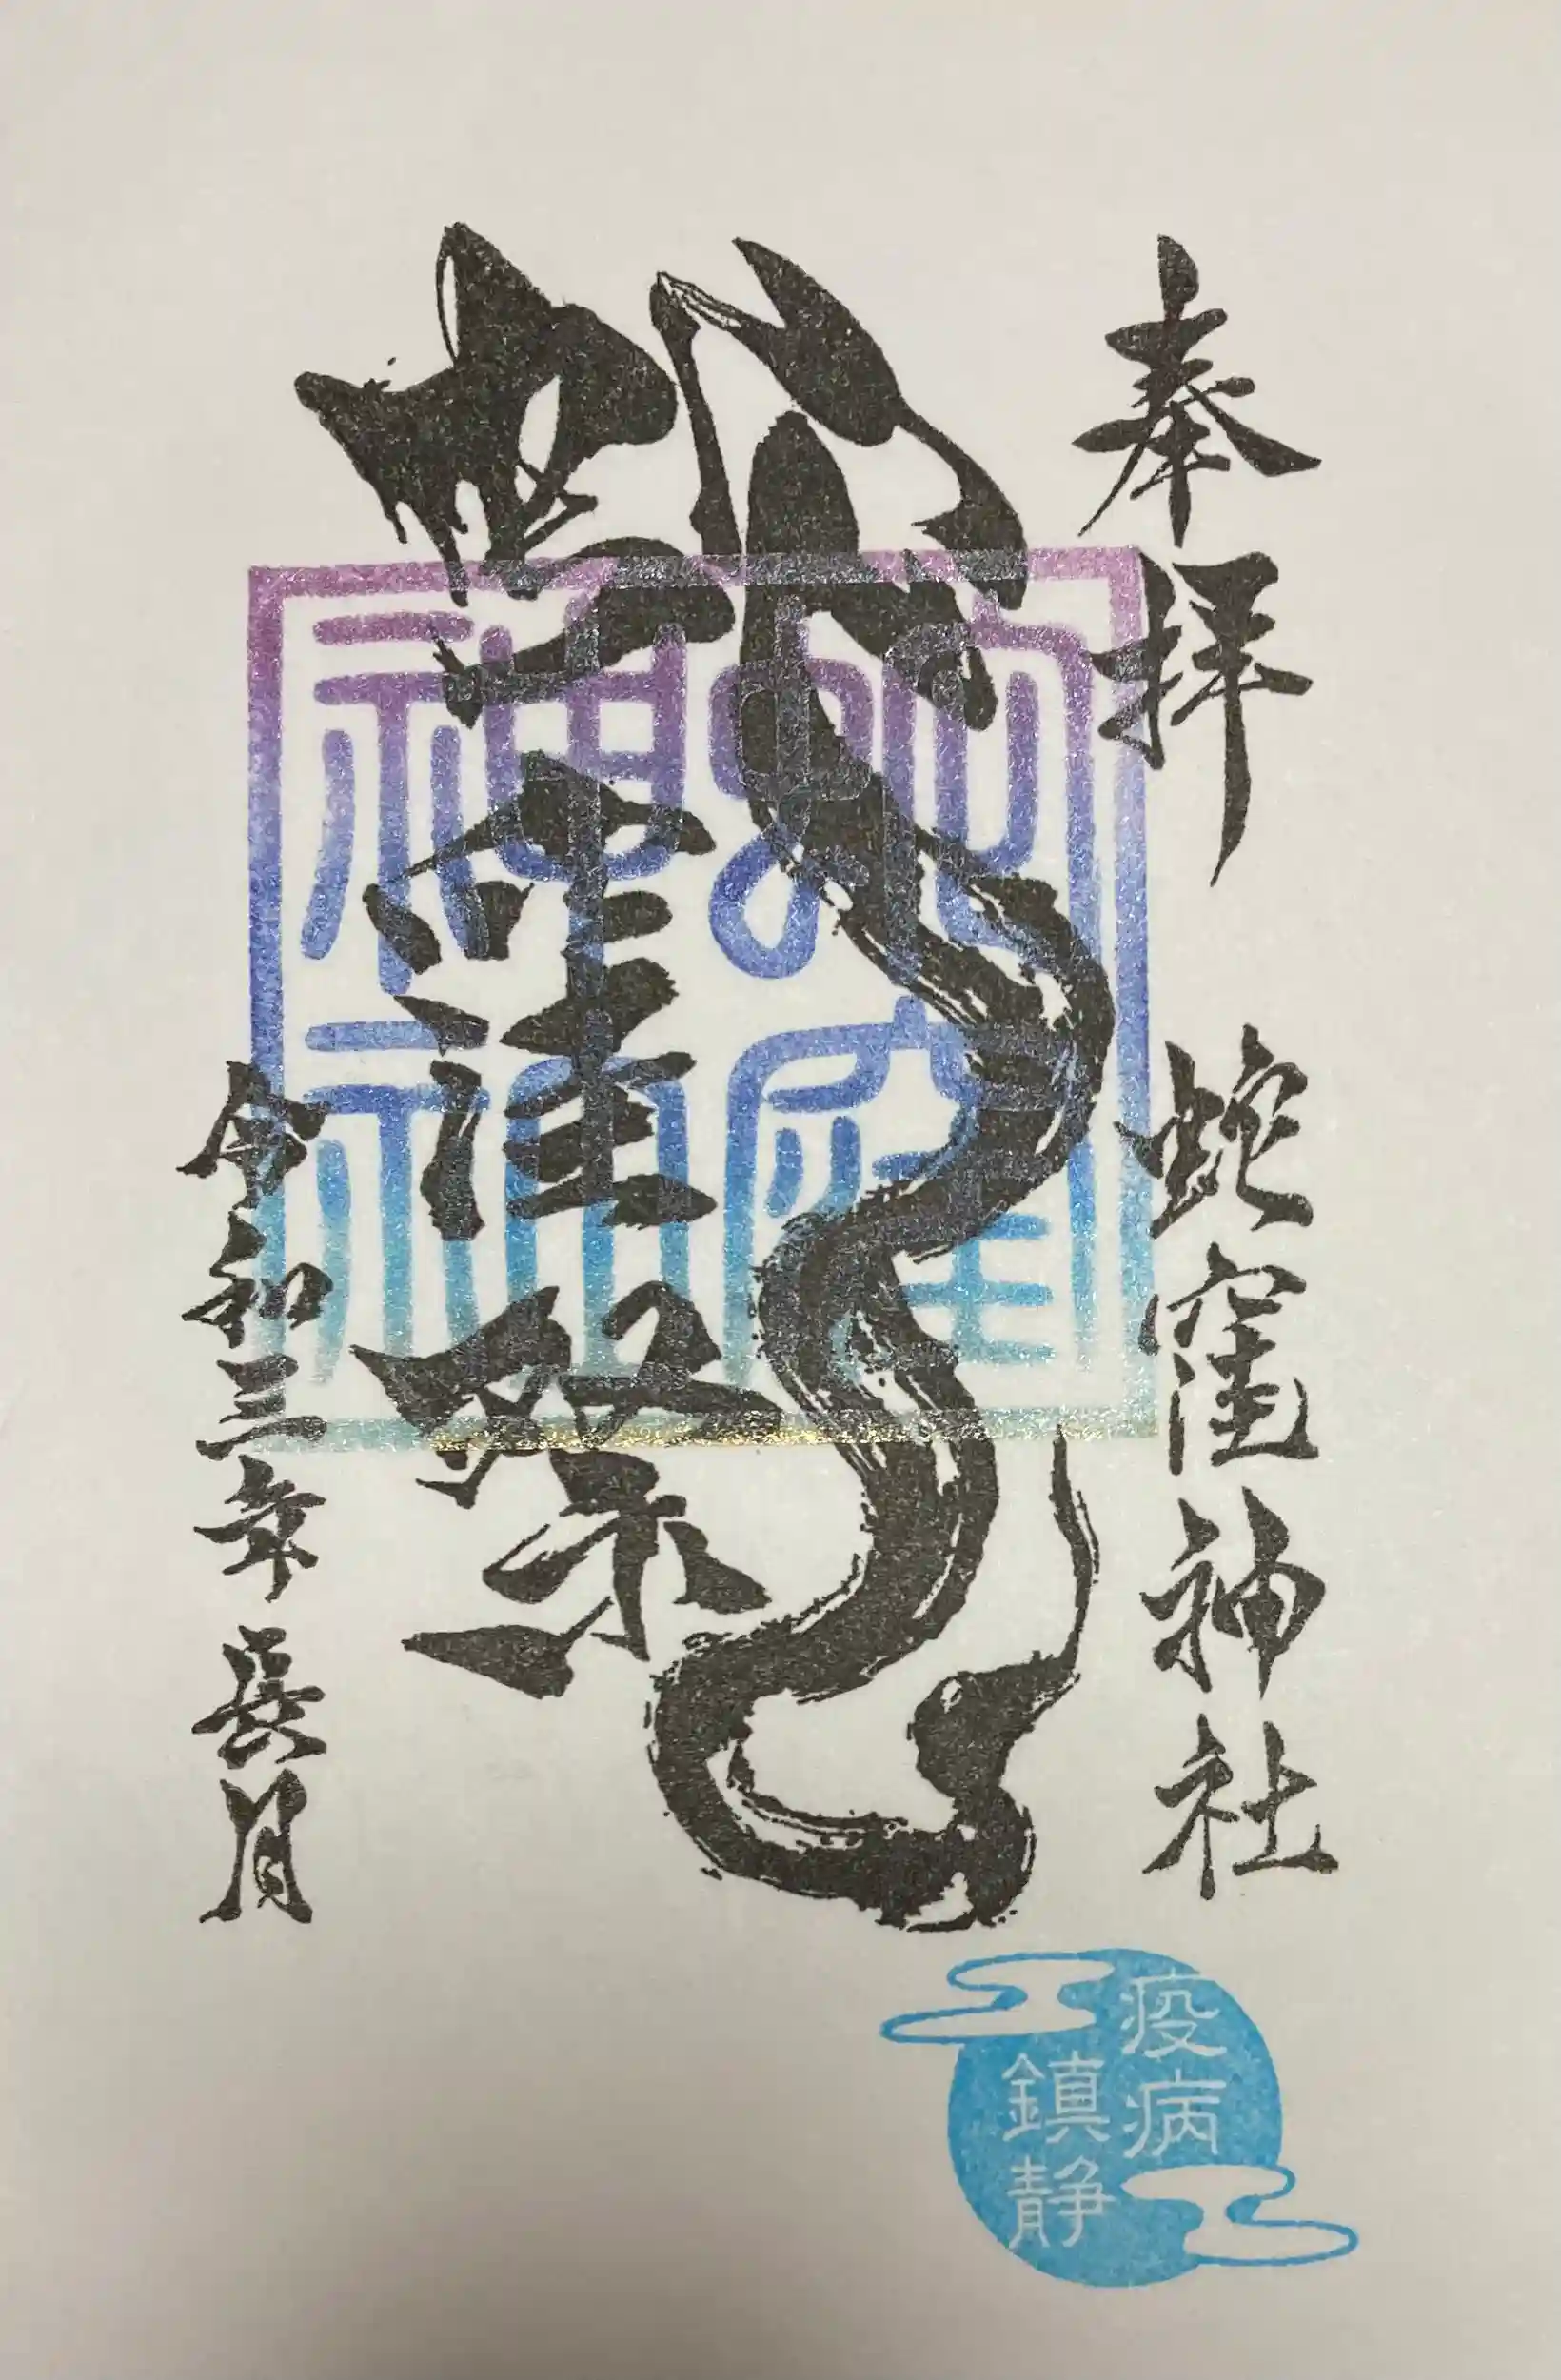 奉拝
蛇窪神社
蛇窪祭
蛇窪神社
令和三年長月
疫病
鎮静